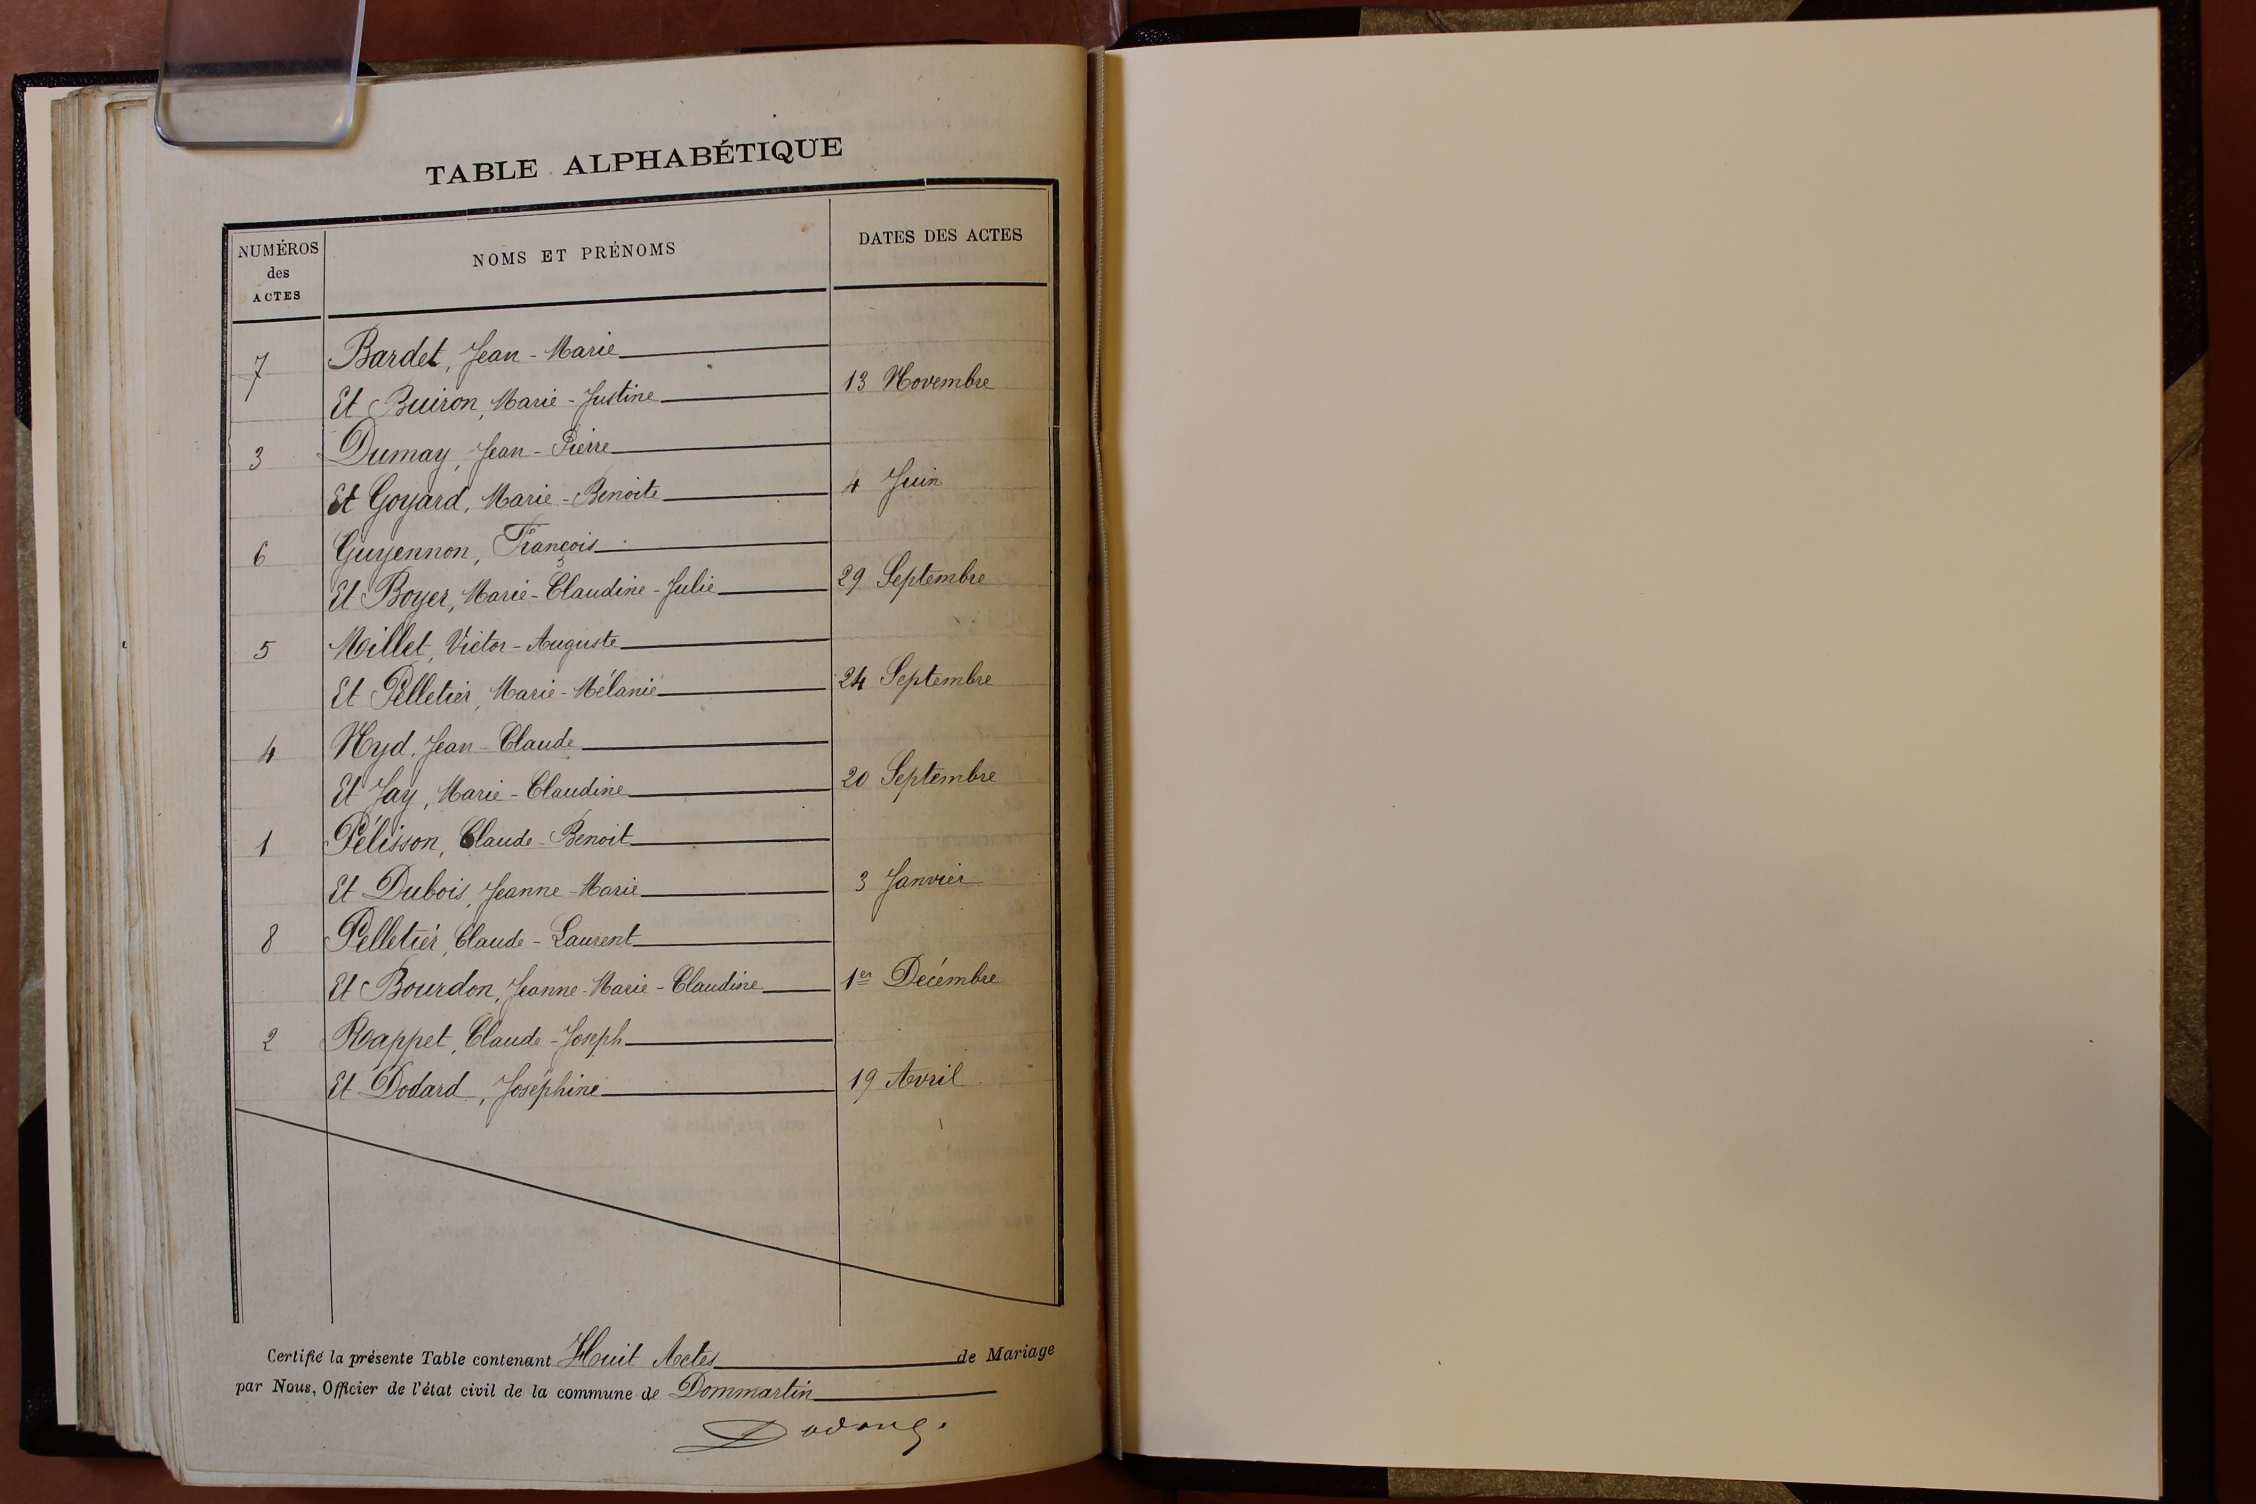 TABLE ALPHABÉTIQUE
NUMÉROS des ACTES
NOMS ET PRÉNOMS
DATES DES ACTES
7 Bardet, Jean-Marie
Et Buiron, Marie-Justine 13 Novembre
3 Dumay, Jean-Pierre
Et Goyard, Marie-Benoite 4 Juin
6 Guyennon, François
Et Boyer, Marie-Claudine-Julie 29 Septembre
5 Millet, Victor-Auguste
Et Pelletier, Marie-Mélanie 24 Septembre
4 Nyd, Jean-Claude
Et Jay, Marie-Claudine 20 Septembre
1 Pélisson, Claude-Benoit
Et Dubois, Jeanne-Marie 3 Janvier
8 Pelletier, Claude-Laurent
Et Bourdon, Jeanne-Marie-Claudine 1er Décembre
2 Rappet, Claude-Joseph
Et Dodard, Joséphine 19 Avril
Certifié la présente Table contenant Huit Actes de Mariage
par Nous, Officier de l'état civil de la commune de Dommartin